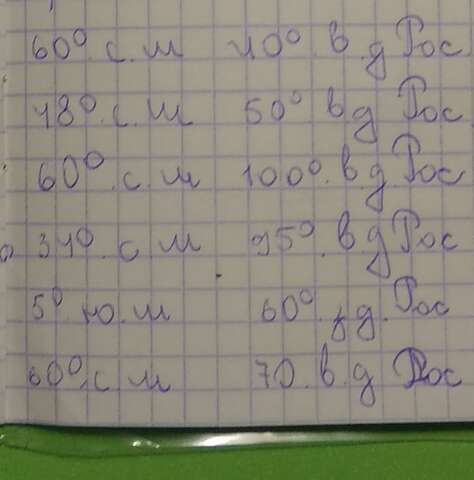 60° с.ш 40° в д Рос
48° с.ш 50° в д Рос
60° с.ш 100° в д Рос
34° с ш 95° в д Рос
5° ю.ш 60° з д. Рос
60° с ш 70. в. д Рос